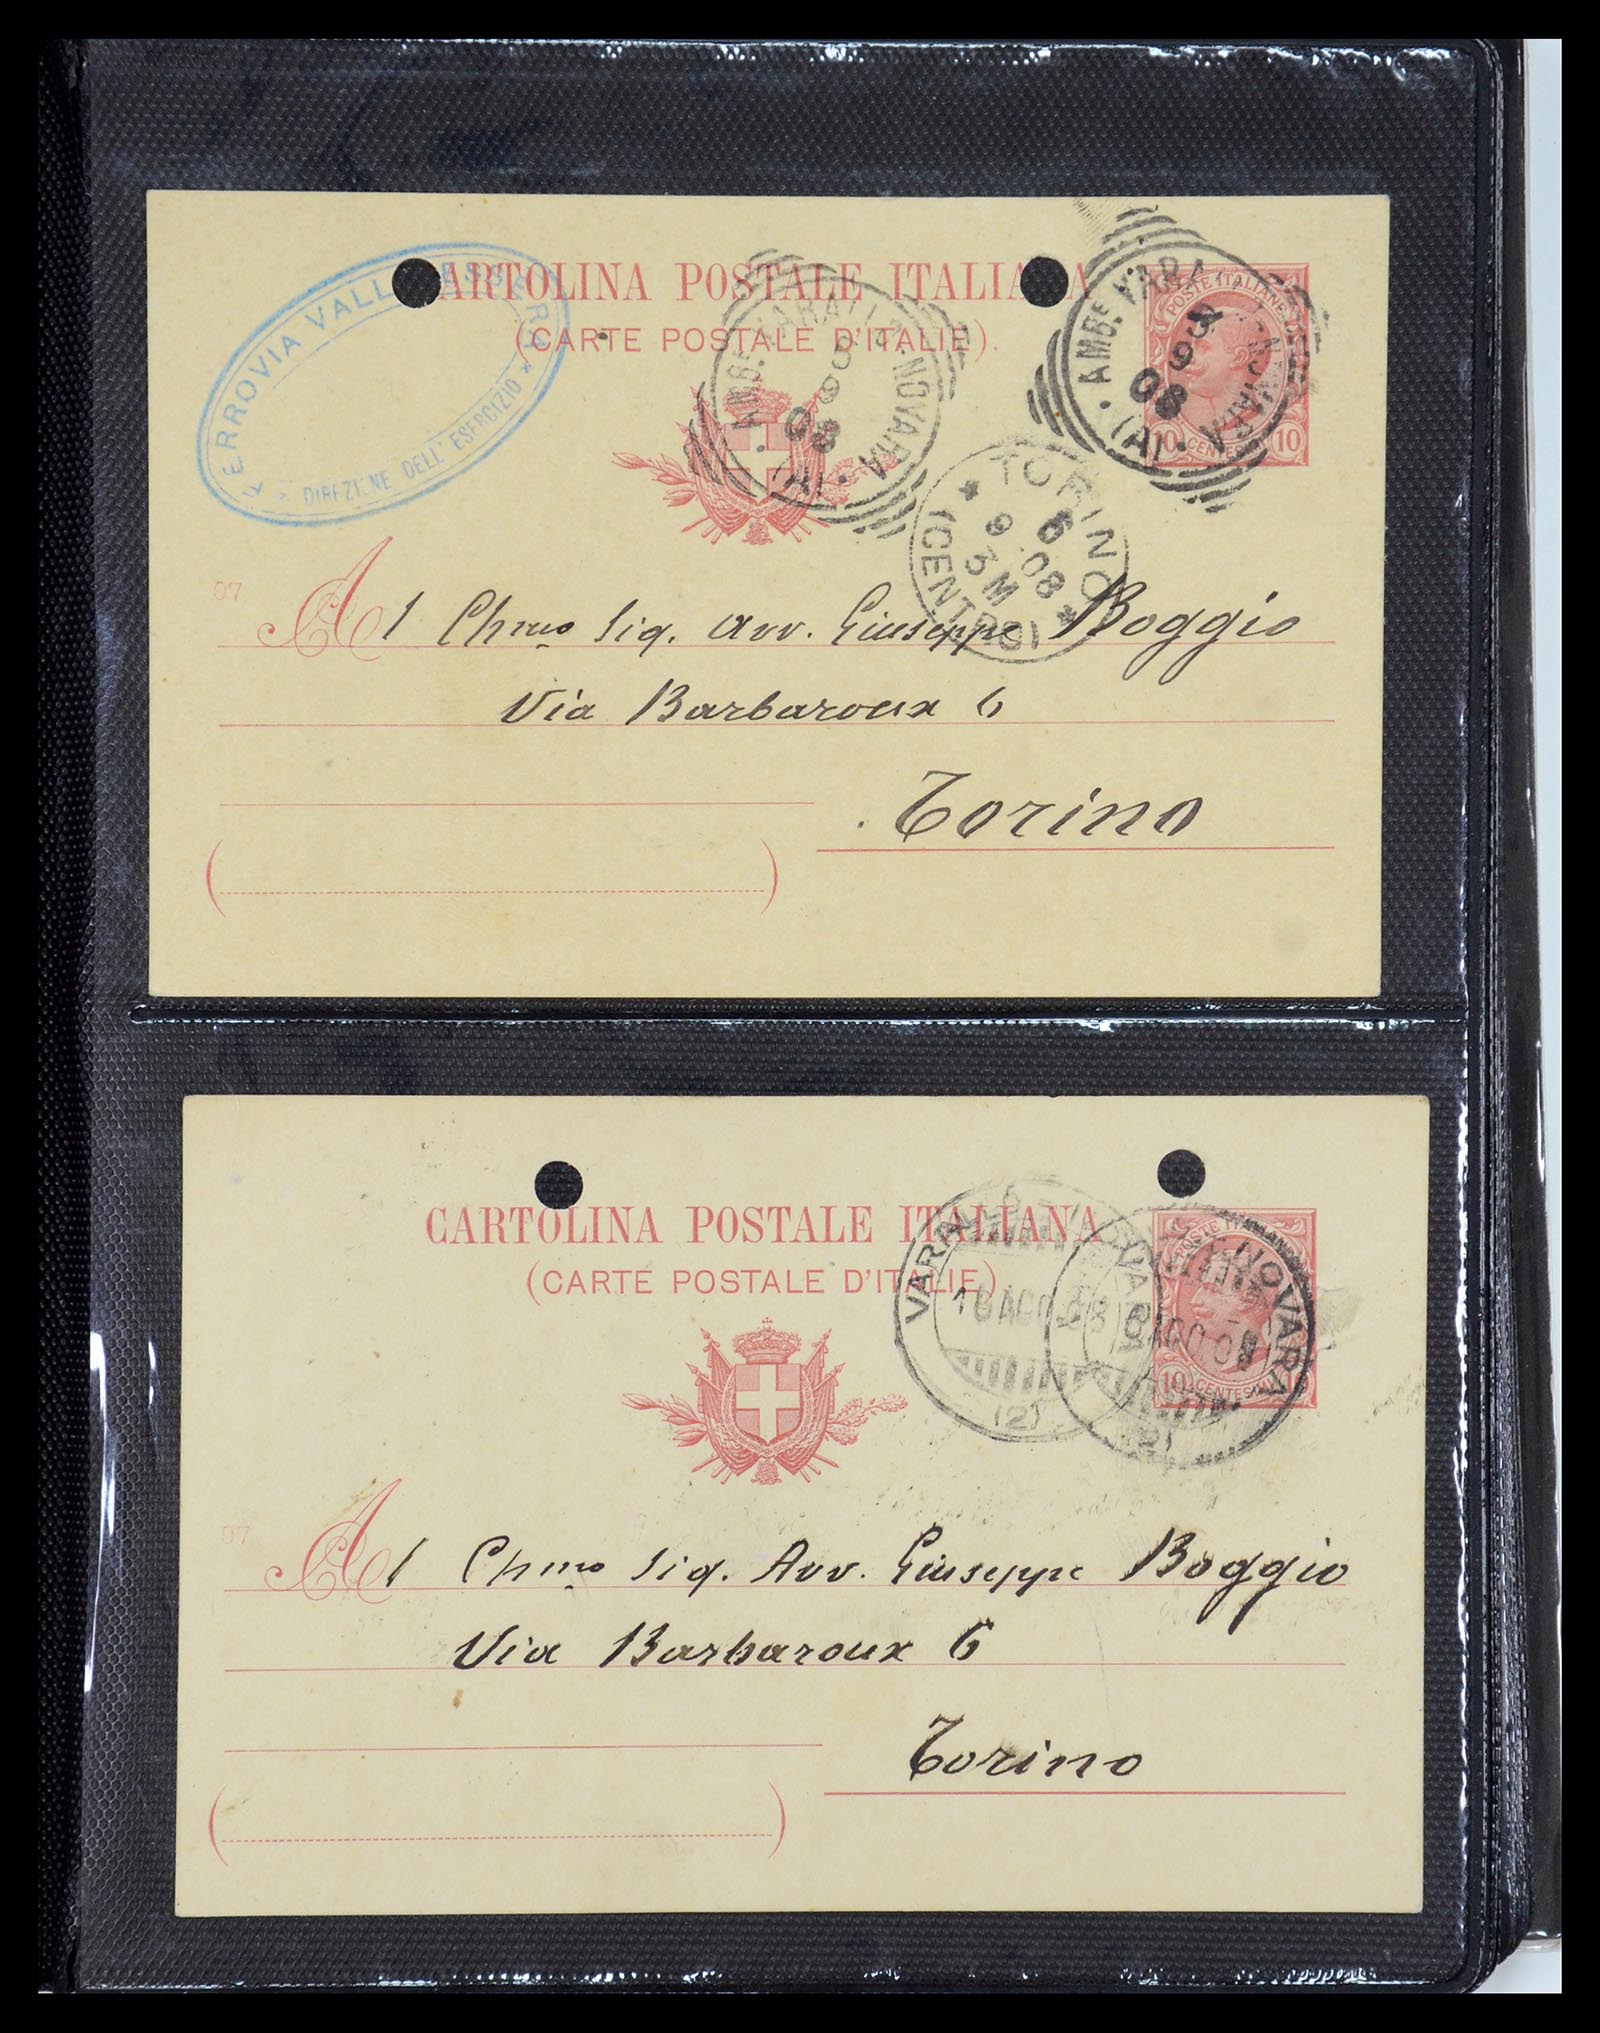 CARTOLINA POSTALE ITALIANA
(CARTE POSTALE D'ITALIE).
FERROVIA
DIREZIONE DELL' ESERCIZIO *
AMB.E VARALLO-NOVARA
9
08
(A)
AMB.E VARA NOVARA
9
08
(A)
POSTE ITALIANE
10 CENTESIMI 10
* TORINO *
6
9 08
3M
(CENTRO)
07
Al Chmo Sig. Avv. Giuseppe Boggio
Via Barbaroux 6
Torino
CARTOLINA POSTALE ITALIANA
(CARTE POSTALE D'ITALIE)
VARALLO
AGO 08
(2)
NOVARA
AGO 08
POSTE ITALIANE
10 CENTESIMI 10
07
Al Chmo Sig. Avv. Giuseppe Boggio
Via Barbaroux 6
Torino